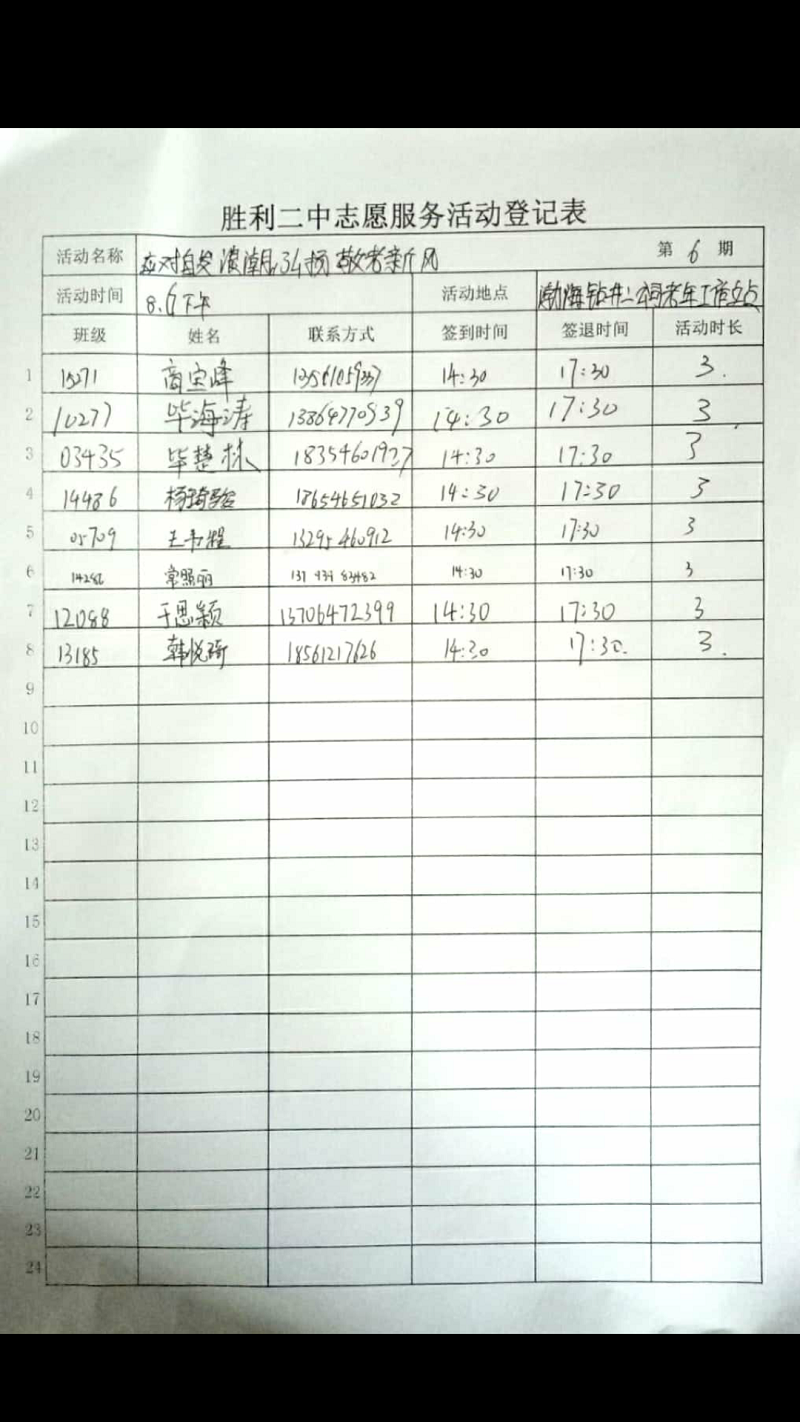 胜利二中志愿服务活动登记表
活动名称 应对自然 浪潮 弘扬敬老新风 第 6 期
活动时间 8.6下午 活动地点 渤海钻井二公司老年工作站点
班级 姓名 联系方式 签到时间 签退时间 活动时长
1 15271 商宝峰 13561059337 14:30 17:30 3.
2 10277 毕海涛 13864770939 14:30 17:30 3
3 03435 毕楚林 18354601937 14:30 17:30 3
4 14486 杨琦骏 18654651032 14:30 17:30 3
5 05709 王 程 13295460912 14:30 17:30 3
6 常照丽 14:30 17:30 3
7 12088 于思颖 13706472399 14:30 17:30 3
8 13185 韩悦琦 18561217626 14:30 17:30. 3.
9
10
11
12
13
14
15
16
17
18
19
20
21
22
23
24